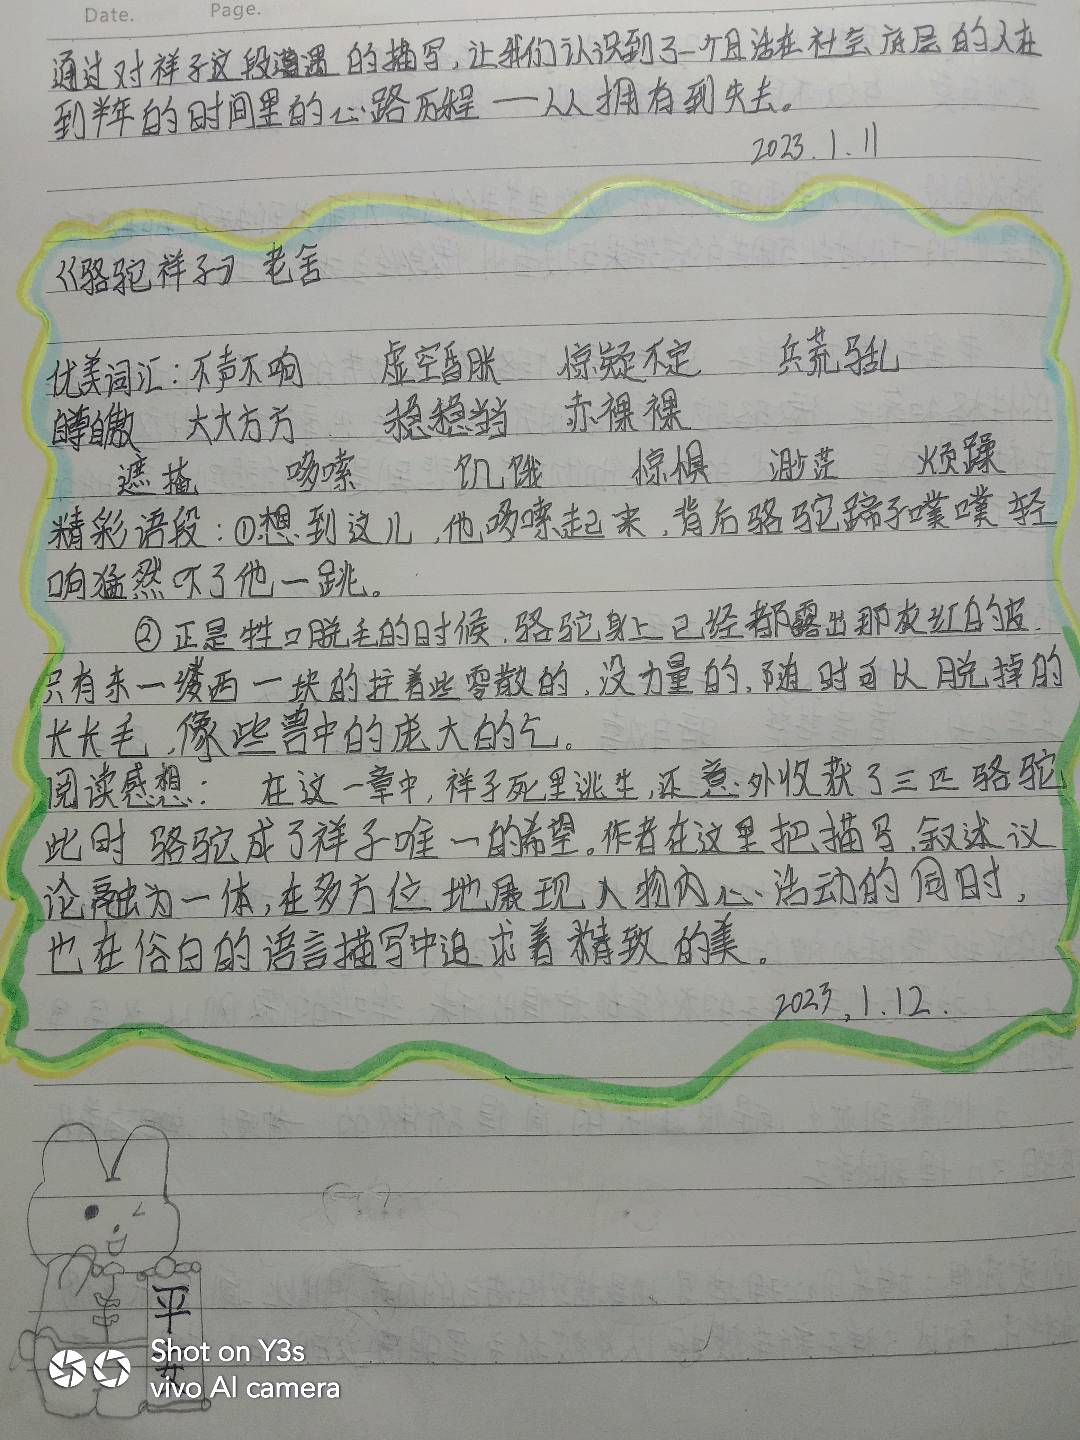 Date. Page.
通过对祥子这段遭遇的描写，让我们认识到了一个且活在社会底层的人在
到半年的时间里的心路历程——从拥有到失去。
2023.1.11
《骆驼祥子》老舍
优美词汇：不声不响 虚空昏胀 惊疑不定 兵荒马乱
自尊自傲 大大方方 稳稳当当 赤裸裸
遮掩 哆嗦 饥饿 惊惧 渺茫 烦躁
精彩语段：①想到这儿，他哆嗦起来，背后骆驼蹄子噗噗轻
响猛然吓了他一跳。
②正是牲口脱毛的时候，骆驼身上已经都露出那灰红的皮，
只有东一缕西一块的挂着些零散的，没力量的，随时可以脱掉的
长长毛，像些兽中的庞大的乞。
阅读感想： 在这一章中，祥子死里逃生，还意外收获了三匹骆驼
此时骆驼成了祥子唯一的希望。作者在这里把描写，叙述议
论融为一体，在多方位地展现人物内心活动的同时，
也在俗白的语言描写中追求着精致的美。
2023,1.12.
平
安
Shot on Y3s
vivo AI camera